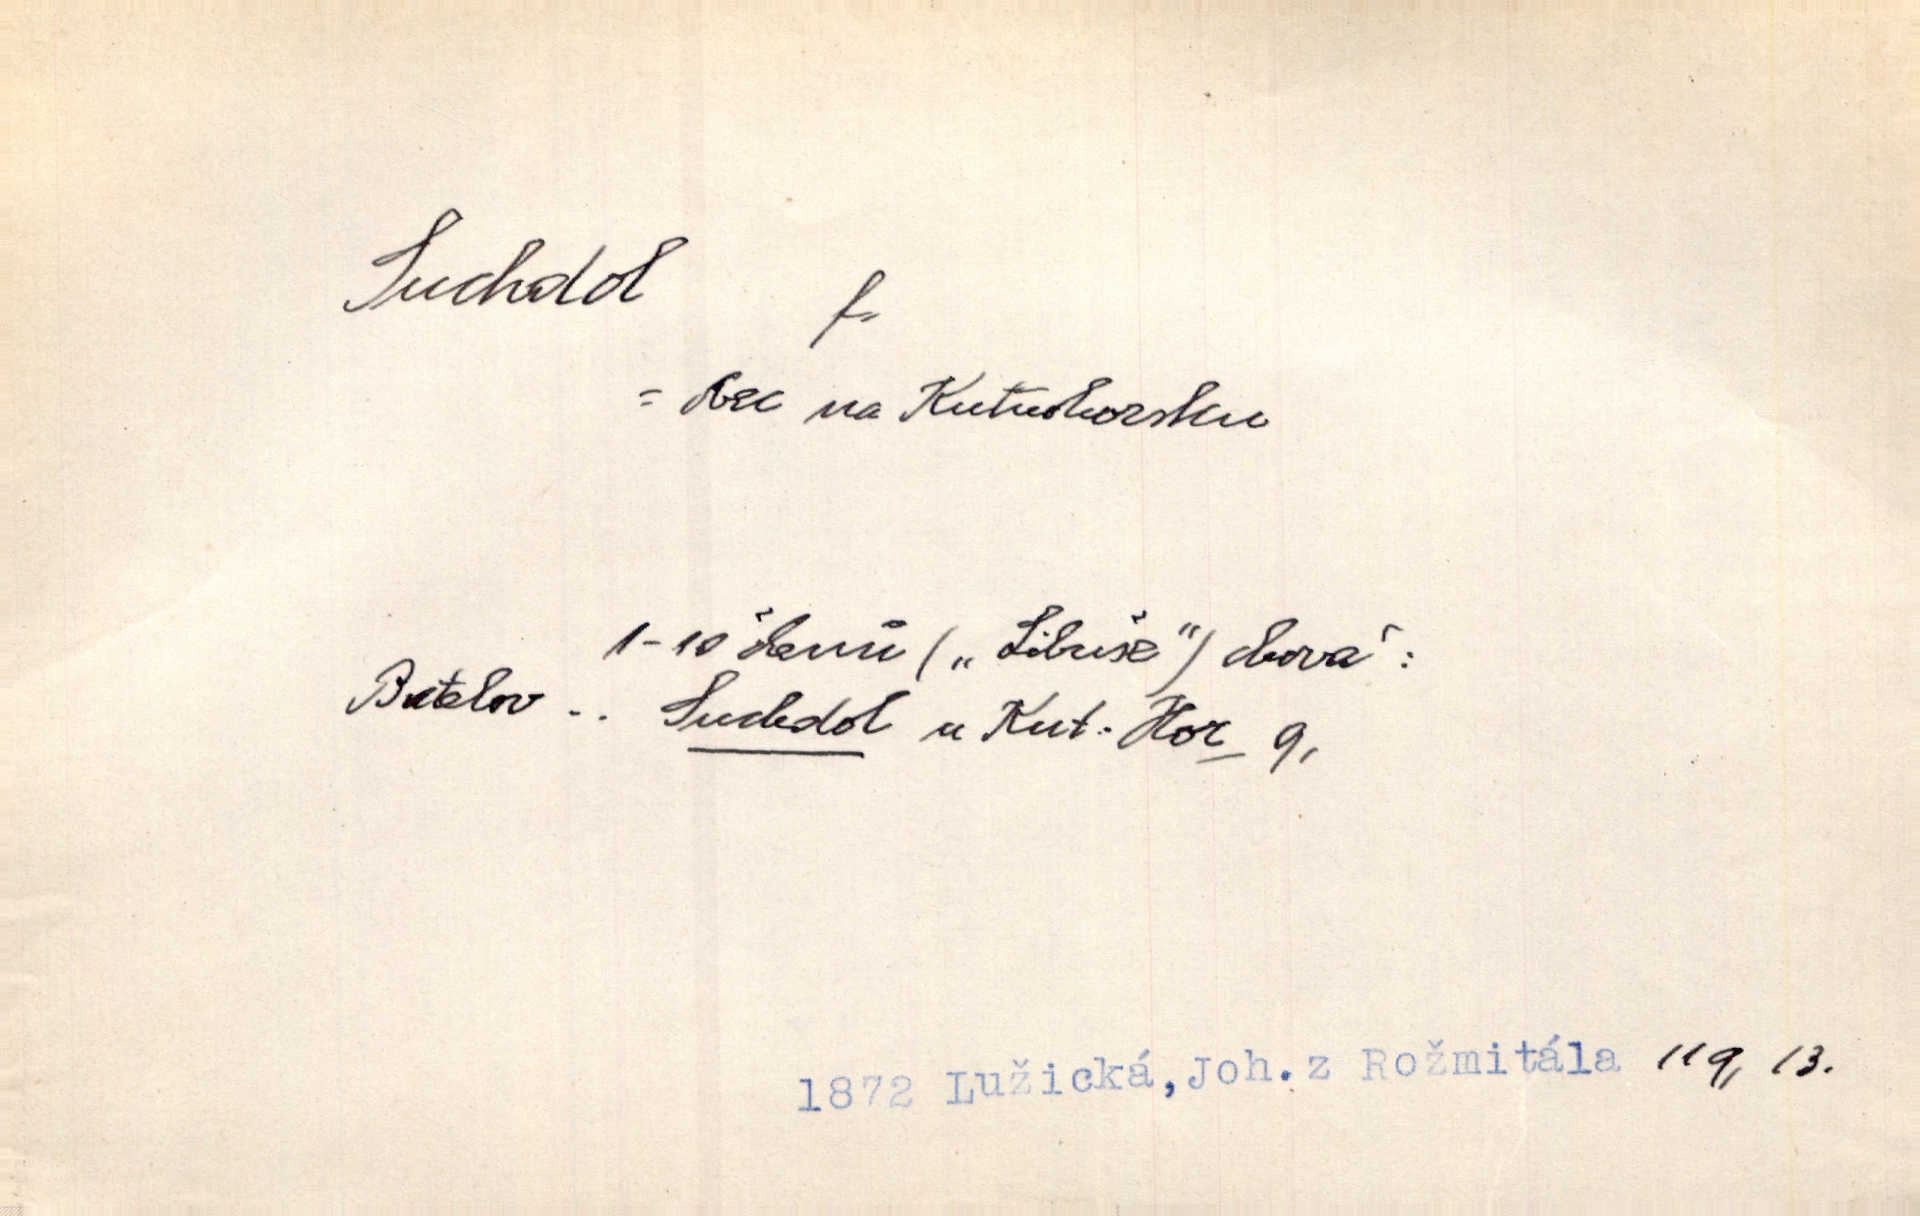 Suchdol f.
= obec na Kutnohorsku
1-10 členů („Libuše") chová:
Batelov .. Suchdol u Kut. Hor 9,
1872 Lužická, Joh. z Rožmitála 119, 13.